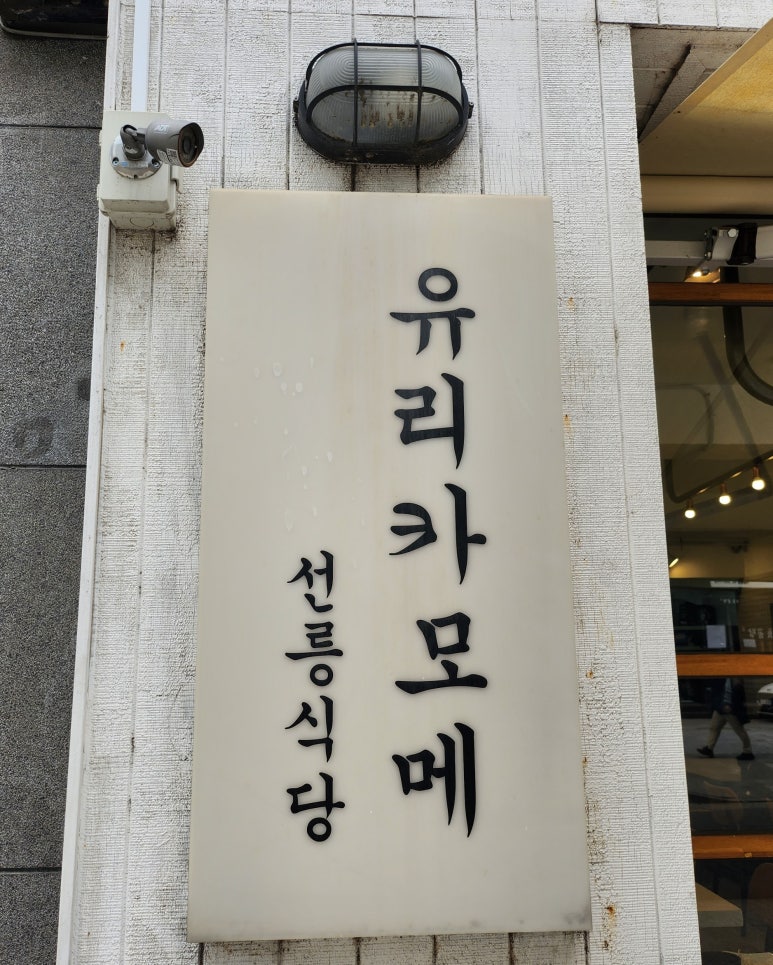 유리카모메
선릉식당